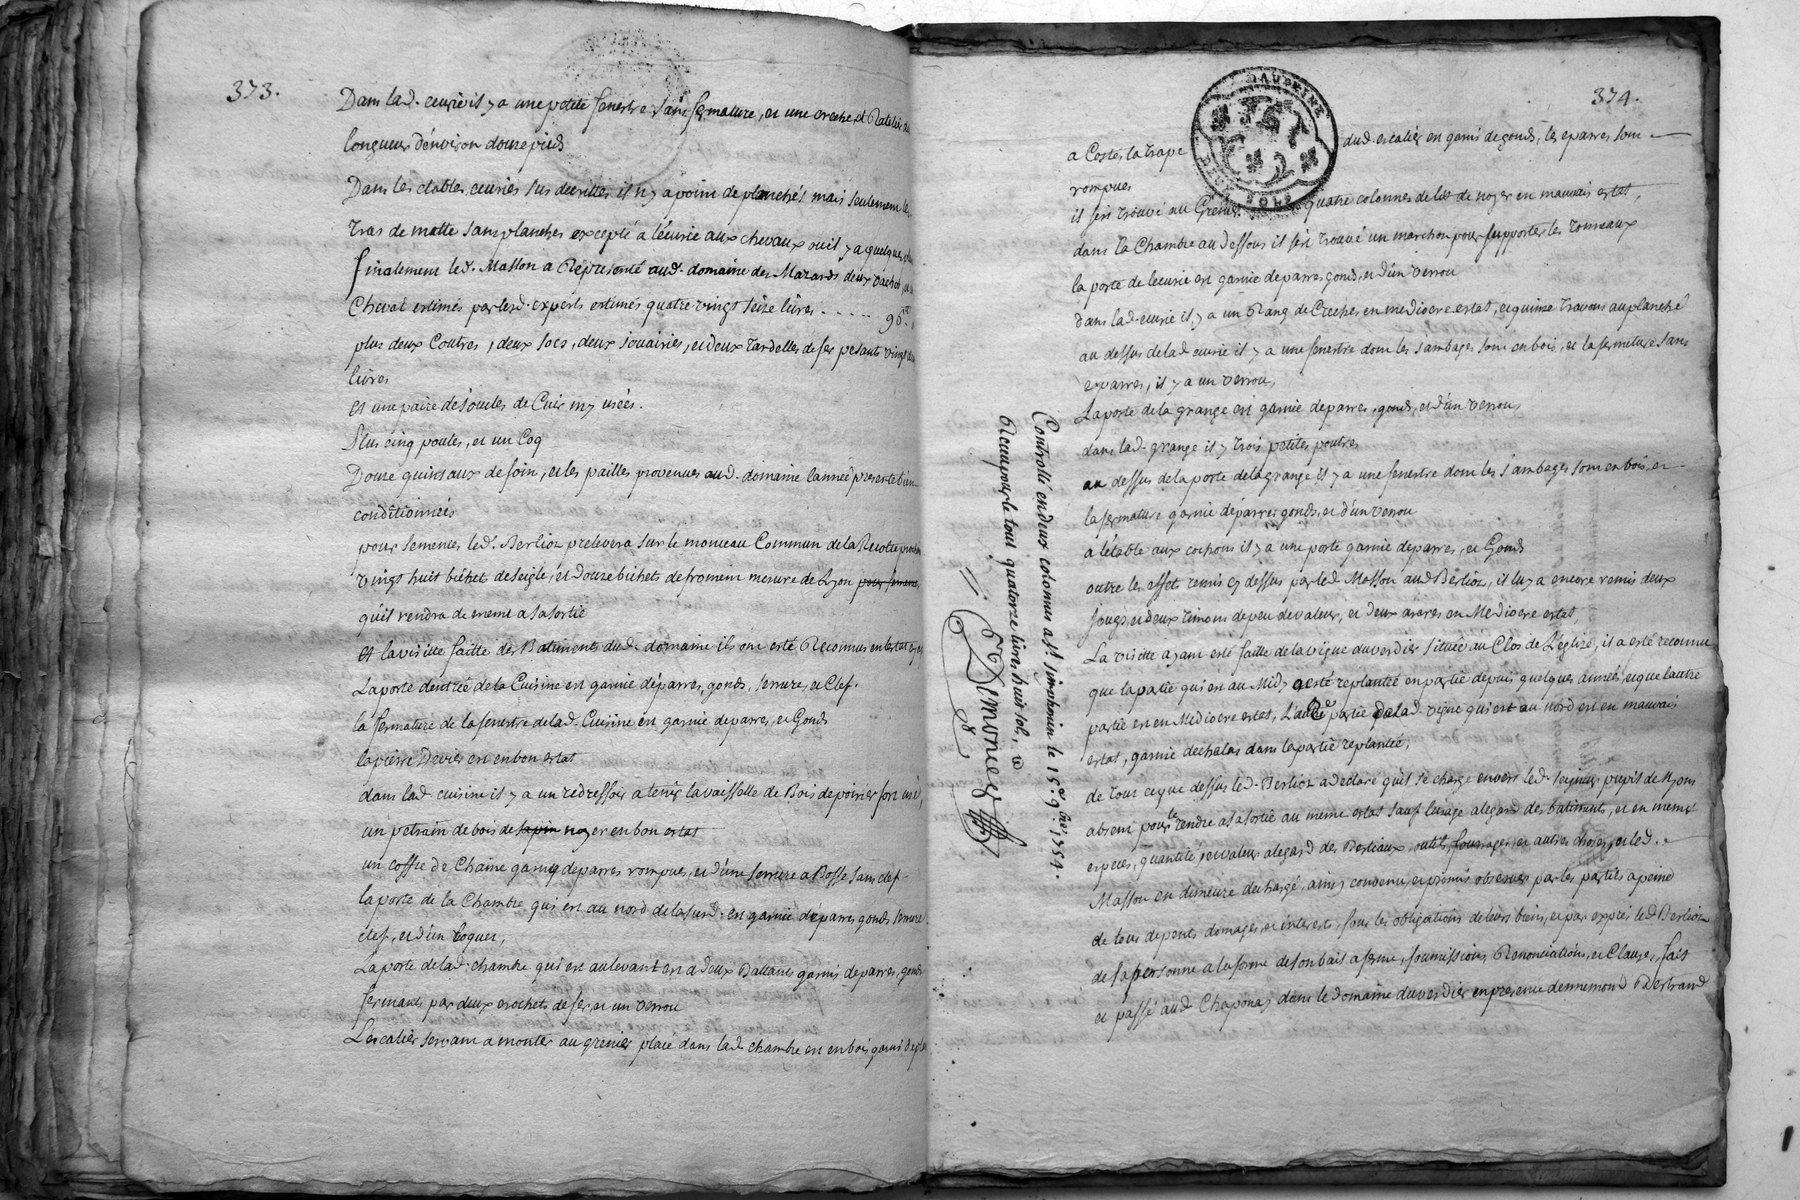 373.
Dans lad. ecurie il y a une petite fenestre sans fermature, et une creche et Ratelier de
longueur d'environ douze pieds
Dans les etables, ecuries sus decrittes il n'y a point de planchés mais seulement les
tras de matte sans planches excepté a l'écurie aux chevaux ou il y a quelques
finalement led. Masson a Representé aud. domaine des Mazards deux vaches, un
Cheval estimés par lesd. experts estimés quatre vingt seize livres . . . . . 96.tt
plus deux Coutres, deux socs, deux souairies, et deux tardelles de fer pesants vingt
livres
et une paire de jouiles de Cuir my usées.
Plus cinq poules, et un Coq
Douze quintaux de foin, et les pailles provenues aud. domaine l'année presente bien
conditionnées
pour semences led. Berlioz prelevera sur le monceau Commun de la Recolte prochaine
vingt huit bichet de seigle, et douze bichets de froment mesure de Lyon pour semence,
qu'il rendra de meme a sa sortie
et la visitte faitte des Batiments dud. domaine ils ont esté Reconnus en l'estat
La porte d'entrée de la Cuisine est garnie d'éparres, gonds, serrure, et Clef.
la fermature de la fenestre de lad. Cuisine est garnie d'eparres, et Gonds
la pierre d'evier est en bon estat
dans lad. cuisine il y a un redressoir a tenir la vaisselle de Bois de poirier fort usé,
un petrain de bois de sapin noyer en bon estat
un coffre de Chaine garny d'eparres rompues, et d'une serrure a Bosse sans clef
la porte de la Chambre qui est au nord de la susd. est garnie d'éparres gonds serrure
clef, et d'un loquet,
La porte de lad. chambre qui est au levant est a deux Battants garnis d'eparres, gonds
fermants par deux crochets de fer, et un verrou
L'escalier servant a monter au grenier placé dans lad. chambre est en bois garni d'
374.
DAUPHINE
DEUX SOLS
a Costes, la trape dud. escalier en garni de gonds, les eparres sont
rompues
il s'est trouvé au Grenier quatre colonnes de lit de noyer en mauvais estat,
dans la Chambre au dessous il s'est trouvé un marchon pour supporter les tonneaux
la porte de l'ecurie est garnie d'eparres, gonds, et d'un verrou
dans lad. ecurie il y a un Rang de Creches, en mediocre estat, et quinze travons au planché
au dessus de lad. ecurie il y a une fenestre dont les jambages sont en bois, et la fermeture sans
eparres, il y a un verrou,
La porte de la grange est garnie d'eparres, gonds, et d'un verrou,
dans lad. grange il y trois petites poutres
au dessus de la porte de la grange il y a une fenestre dont les jambages sont en bois, et
la fermature garnie d'éparres gonds, et d'un verrou
a l'étable aux cochons il y a une porte garnie d'eparres, et Gonds
outre les effet remis cy dessus par led. Masson aud. Berlioz, il luy a encore remis deux
jougs, et deux timons de peu de valeur, et deux araires en Mediocre estat,
La visitte ayant esté faitte de la vigne du verdier situee au Clos de L'eglise, il a esté reconnu
que la partie qui est au Midy a esté replantée en partie depuis quelques années, et que l'autre
partie est en Mediocre estat, L'autre partie de lad. vigne qui est au nord est en mauvais
estat, garnie d'echalas dans la partie replantée,
de tout ce que dessus led. Berlioz a declaré qu'il se charge envers led. seigneur pupil de Lyons
absent pour le rendre a sa sortie au meme estat sauf l'usage a legard des batiments, et en memes
especes, quantité, et valeur a legard des Bestiaux, outils, fourages, et autres choses, et led.
Masson en demeure dechargé, ainsy convenu, et promis observer par les parties a peine
de tous depents domages, et interets, sous les obligations de leurs biens, et par exprés led. Berlioz
de sa personne a la forme de son bail a ferme, soumissions, Renonciations, et Clauses, fait
et passé aud. Chaponay dans le domaine du verdier en presence d'ennemond Bertrand
Controllé en deux colonnes a St. simphorien le 15e. 9bre. 1754.
Receu pour le tout quatorze livres huit sols, rd
Simonet